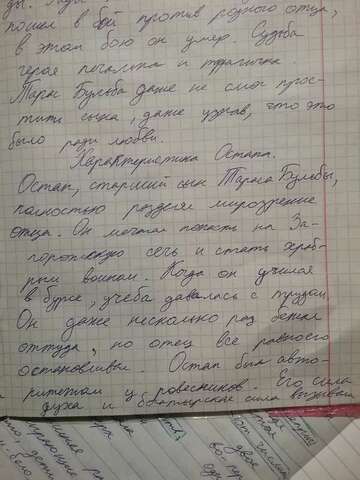 ды.
пошел в бой против родного отца,
в этом бою он умер. Судьба
героя печальна и трагична
Тарас Бульба даже не смог прос-
тить сына, даже узнав, что это
было ради любви.
Характеристика Остапа.
Остап, старший сын Тараса Бульбы,
полностью разделял мировоззрение
отца. Он мечтал попасть на За-
порожскую сечь и стать храб-
рым воином. Когда он учился
в бурсе, учеба давалась с трудом
Он даже несколько раз бежал
оттуда, но отец все равно его
останавливал. Остап был авто-
ритетом у ровесников. Его сила
духа и богатырская сила вызывали